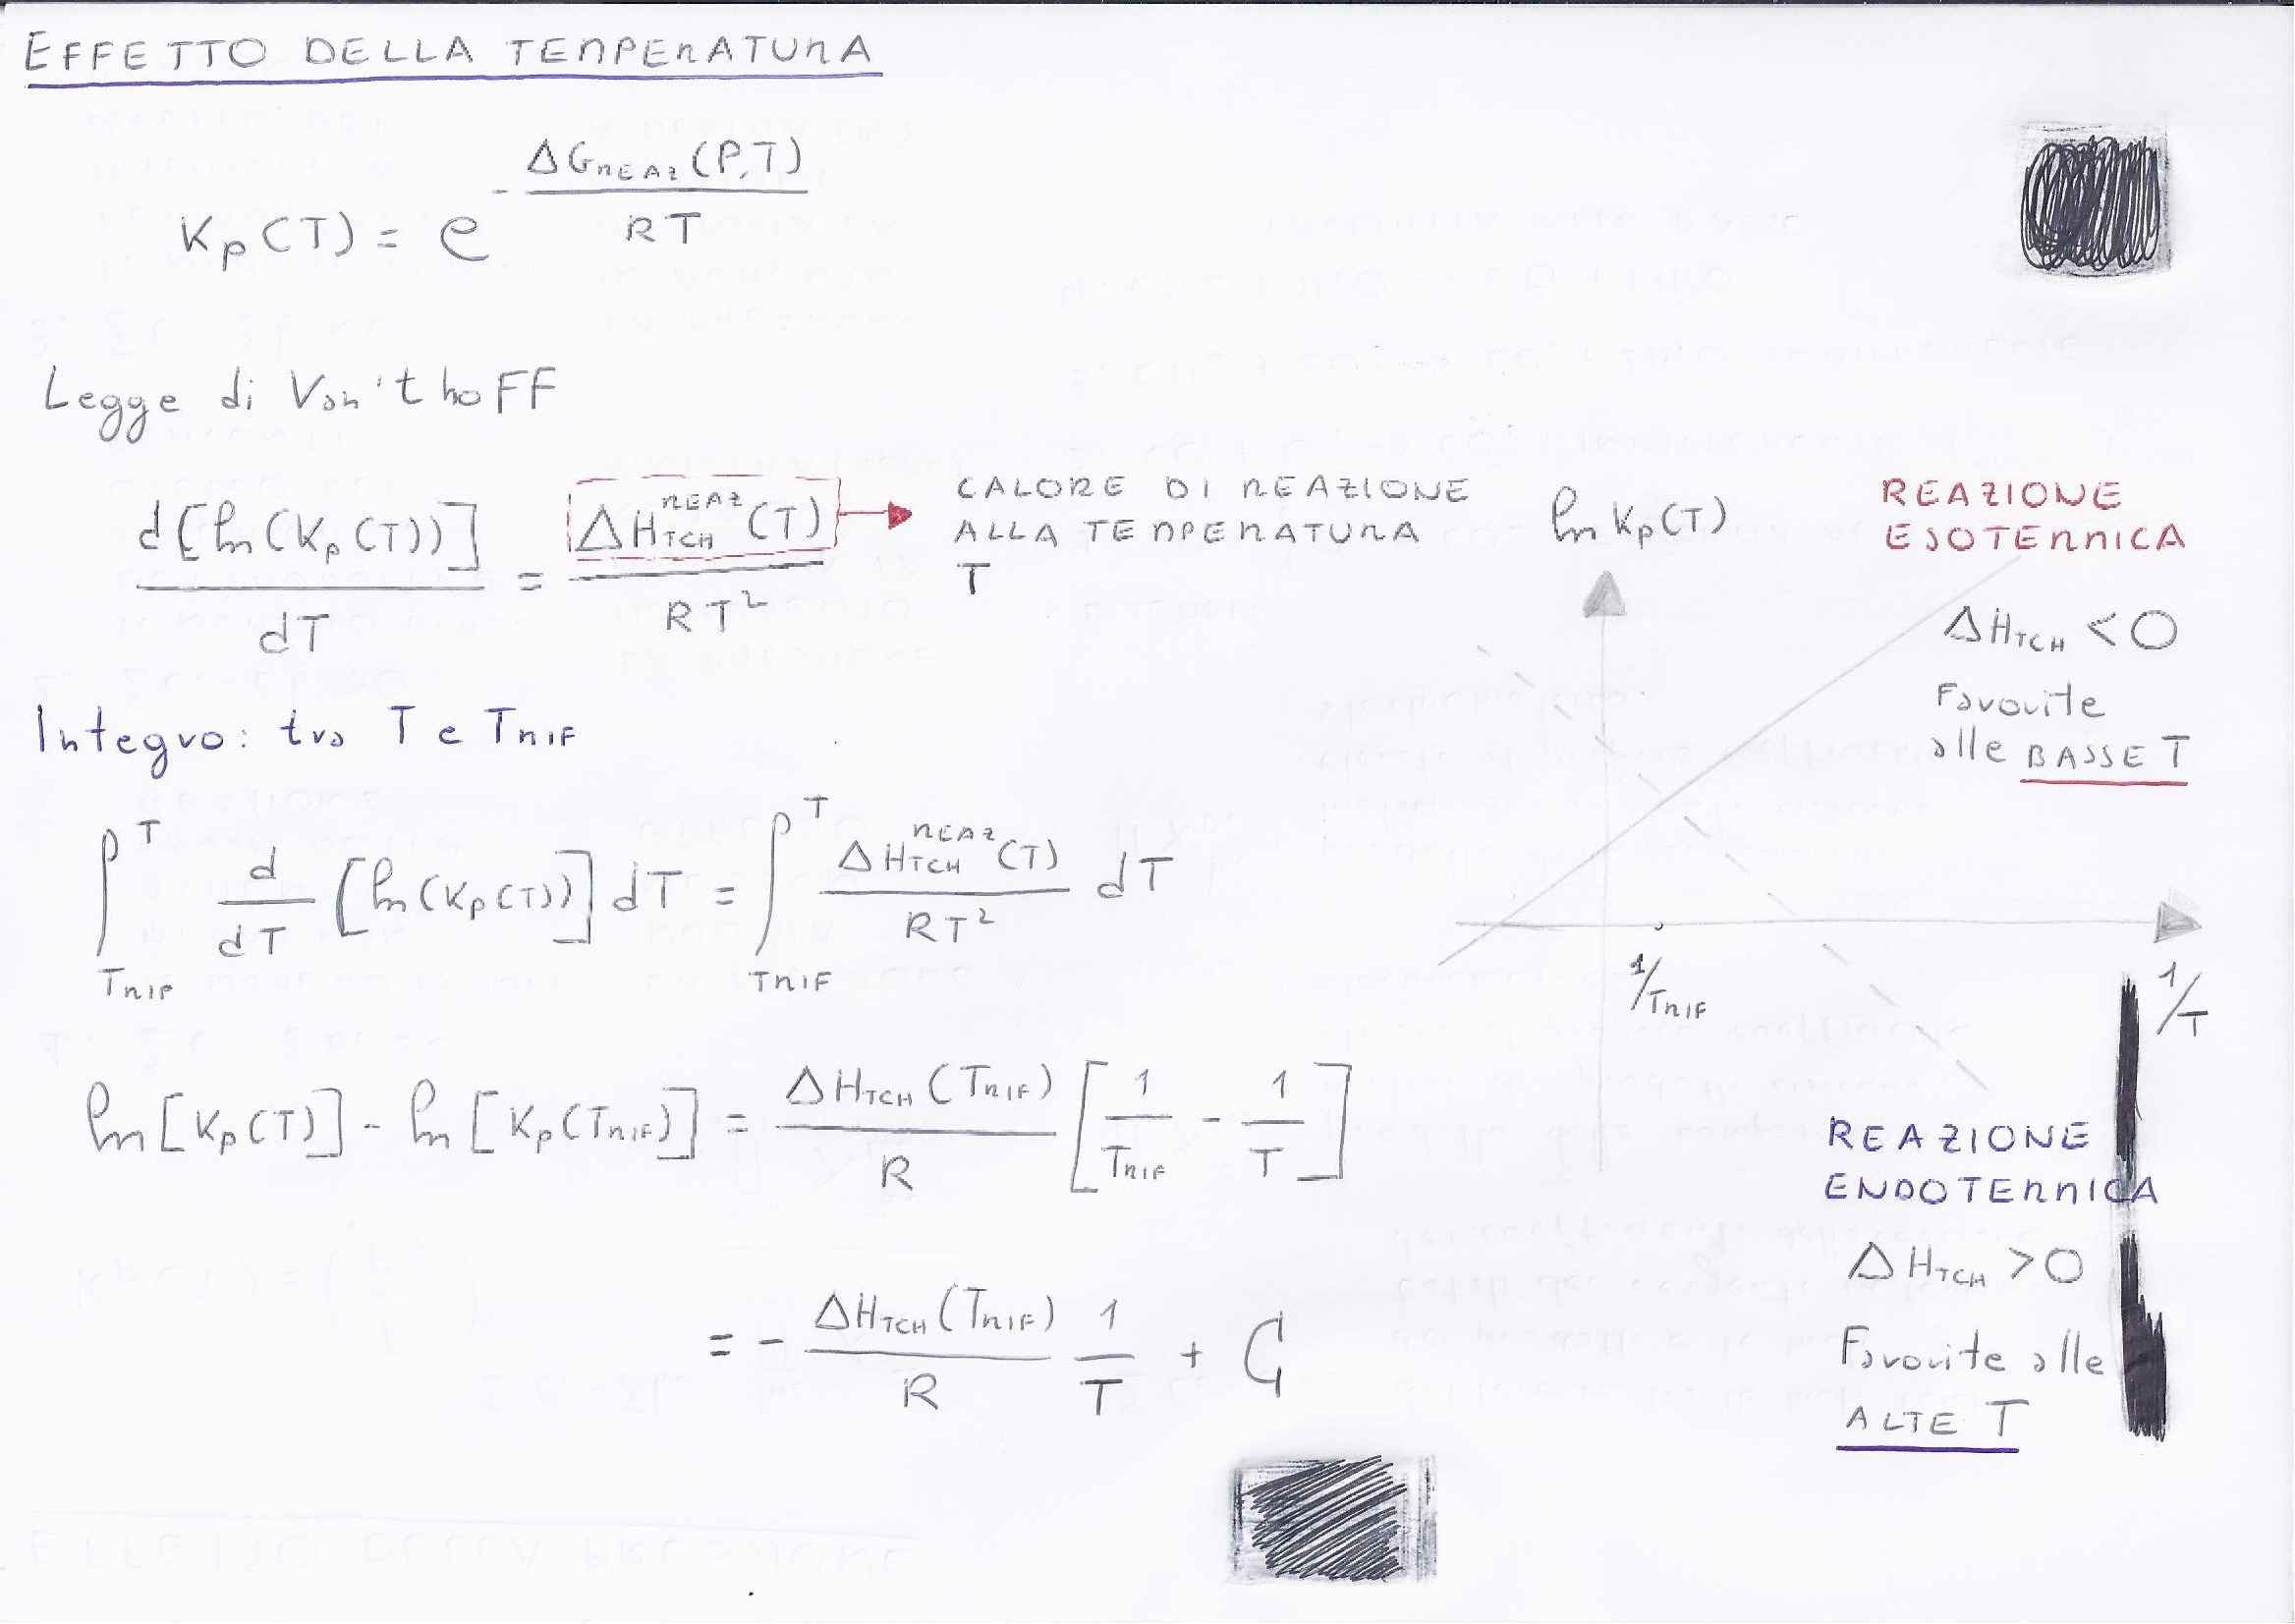 EFFETTO DELLA TEMPERATURA
Kp(T) = e^(-ΔG_REAZ(P,T)/RT)
Legge di Van't hoFF
d[ln(Kp(T))]/dT = ΔH_TCH^REAZ(T)/RT²
CALORE DI REAZIONE
ALLA TEMPERATURA
T
Integro: tra T e T_RIF
∫_{T_RIF}^{T} d/dT [ln(Kp(T))] dT = ∫_{T_RIF}^{T} ΔH_TCH^REAZ(T)/RT² dT
ln[Kp(T)] - ln[Kp(T_RIF)] = ΔH_TCH(T_RIF)/R [1/T_RIF - 1/T]
= - ΔH_TCH(T_RIF)/R 1/T + C
ln Kp(T)
REAZIONE
ESOTERMICA
ΔH_TCH < 0
Favorite
alle BASSE T
1/T_RIF
1/T
REAZIONE
ENDOTERMICA
ΔH_TCH > 0
Favorite alle
ALTE T